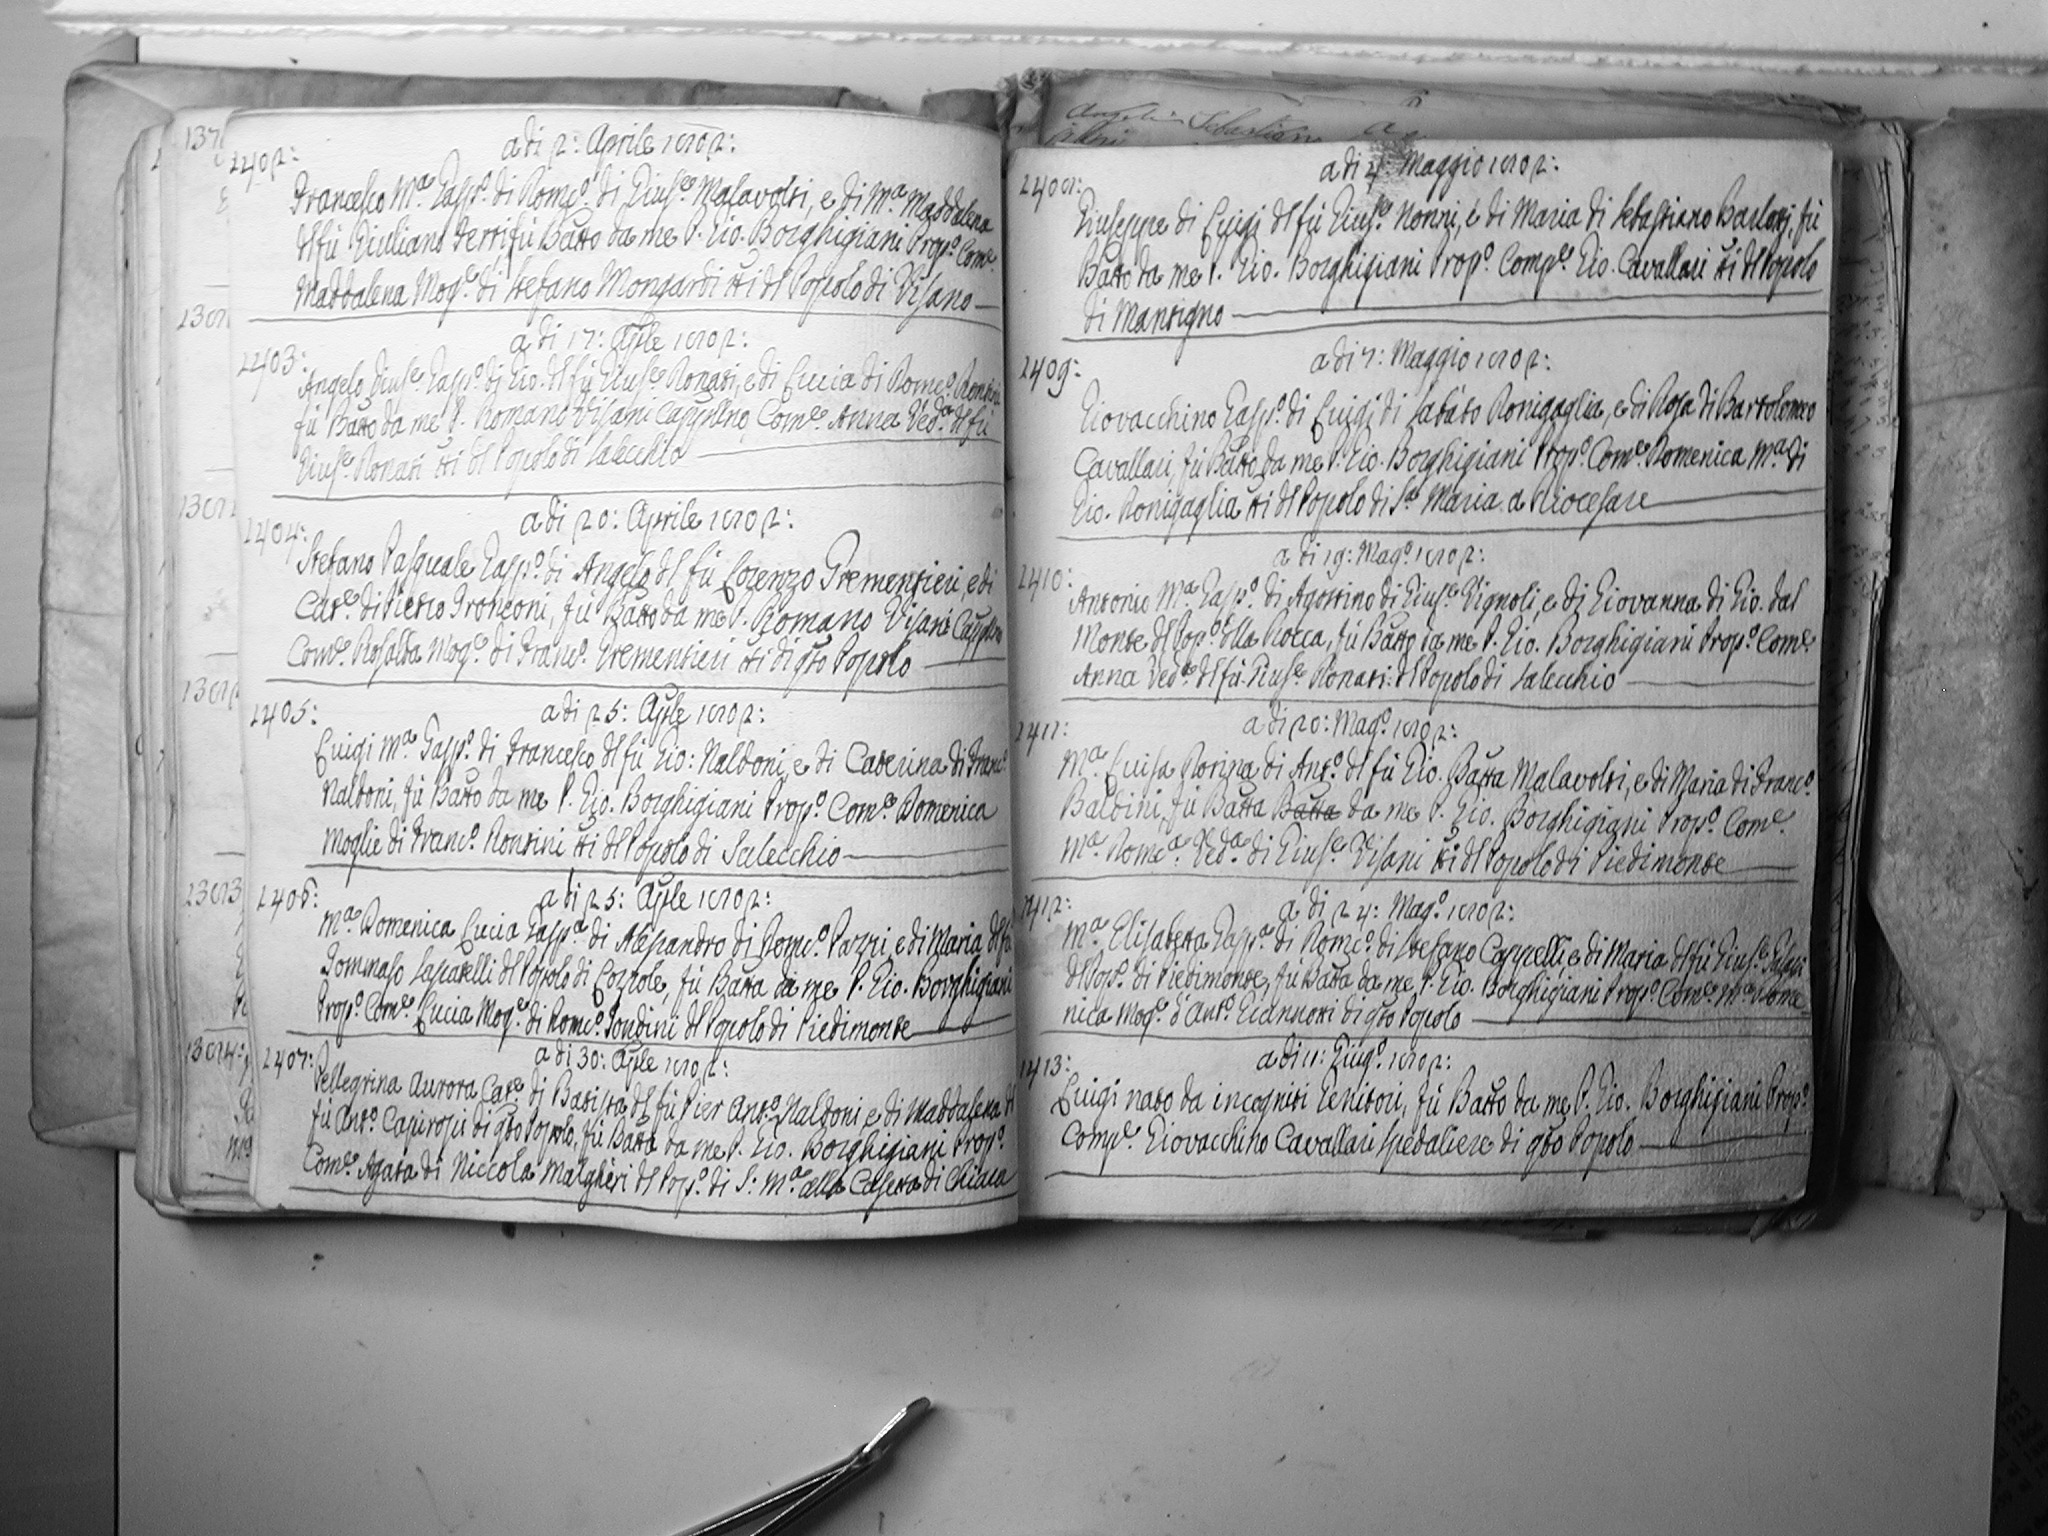 1402:
a di 2: Aprile 1802:
Francesco Mª Gasp.º di Dom.co di Gius.e Malavolti, e di Mª Maddalena
del fù Giuliano Ferri fù Batt.o da me P. Gio. Borghigiani Prop.º Com.e
Maddalena Mog.e di Stefano Mongardi tti del Popolo di Visano
1403:
a di 17: Aple 1802:
Angelo Gius.e Gasp.º di Gio. del fù Gius.e Donati, e di Lucia di Dom.co
fù Batto da me P. Romano Visani Cappllno, Com.e Anna Ved.a del fù
Gius.e Donati tti del Popolo di Salecchio
1404:
a di 20: Aprile 1802:
Stefano Pasquale Gasp.º di Angelo del fù Lorenzo Trementieri, e di
Cat.e di Pietro Fronconi, fù Batto da me P. Romano Visani Cappllno
Com.e Rosalba Mog.e di Franc.º Trementieri tti di qto Popolo
1405:
a di 25: Aple 1802:
Luigi Mª Gasp.º di Francesco del fù Gio: Naldoni, e di Caterina di Franc.º
Naldoni, fù Batto da me P. Gio. Borghigiani Prop.º Com.e Domenica
Moglie di Franc.º Rontini tti del Popolo di Salecchio
1406:
a di 25: Aple 1802:
Mª Domenica Lucia Gasp.a di Alessandro di Dom.co Pazzi, e di Maria del fù
Tommaso Scparelli del Popolo di Lozzole, fù Batta da me P. Gio. Borghigiani
Prop.º Com.e Lucia Mog.e di Dom.co Tondini del Popolo di Piedimonte
1407:
a di 30: Aple 1802:
Pellegrina Aurora Cat.e di Batista del fù Pier Ant.º Naldoni e di Maddalena del
fù Ant.º di qto Popolo. fù Batta da me P. Gio. Borghigiani Prop.º
Com.e Agata di Niccola Malgheri del Pop.º di S: Mª alla Casetta di Chiara
1408:
a di 4: Maggio 1802:
Giuseppe di Luigi del fù Gius.e Nonni, e di Maria di Sebastiano Barlotti, fù
Batto da me P. Gio. Borghigiani Prop.º Comp.e Gio. Cavallari tti del Popolo
di Mantigno
1409:
a di 7: Maggio 1802:
Giovacchino Gasp.º di Luigi di Sabato Ronigaglia, e di Rosa di Bartolomeo
Cavallari, fù Batto da me P. Gio. Borghigiani Prop.º Com.e Domenica Mª di
Gio. Ronigaglia tti del Popolo di S.a Maria a Riocesare
1410:
a di 19: Mag.º 1802:
Antonio Mª Gasp.º di Agostino di Gius.e Vignoli, e di Giovanna di Gio. dal
Monte del Pop.º della Rocca, fù Batto da me P. Gio. Borghigiani Prop.º Com.e
Anna Ved.a del fù Gius.e Donati: del Popolo di Salecchio
1411:
a di 20: Mag.º 1802:
Mª Luisa Rosina di Ant.º del fù Gio. Batta Malavolti, e di Maria di Franc.º
Baldini, fù Batta Batta da me P. Gio. Borghigiani Prop.º Com.e
Mª Dom.ca Ved.a di Gius.e Visani tti del Popolo di Piedimonte
1412:
a di 24: Mag.º 1802:
Mª Elisabetta Gasp.a di Dom.co di Stefano Cappelli, e di Maria del fù Gius.e
del Pop.º di Piedimonte, fù Batta da me P. Gio. Borghigiani Prop.º Com.e Mª Dome
nica Mog.e d'Ant.º Giannotti di qto Popolo
1413:
a di 11: Giug.º 1802:
Luigi nato da incogniti Genitori, fù Batto da me P. Gio. Borghigiani Prop.º
Comp.e Giovacchino Cavallari Spedaliere di qto Popolo